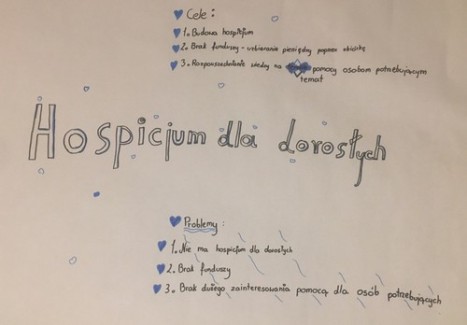 Cele:
1. Budowa hospicjum
2. Brak funduszy - uzbieranie pieniędzy poprzez
3. Rozpowszechnianie wiedzy na pomocy osobom potrzebującym
temat
Hospicjum dla dorosłych
Problemy:
1. Nie ma hospicjum dla dorosłych
2. Brak funduszy
3. Brak dużego zainteresowania pomocą dla osób potrzebujących